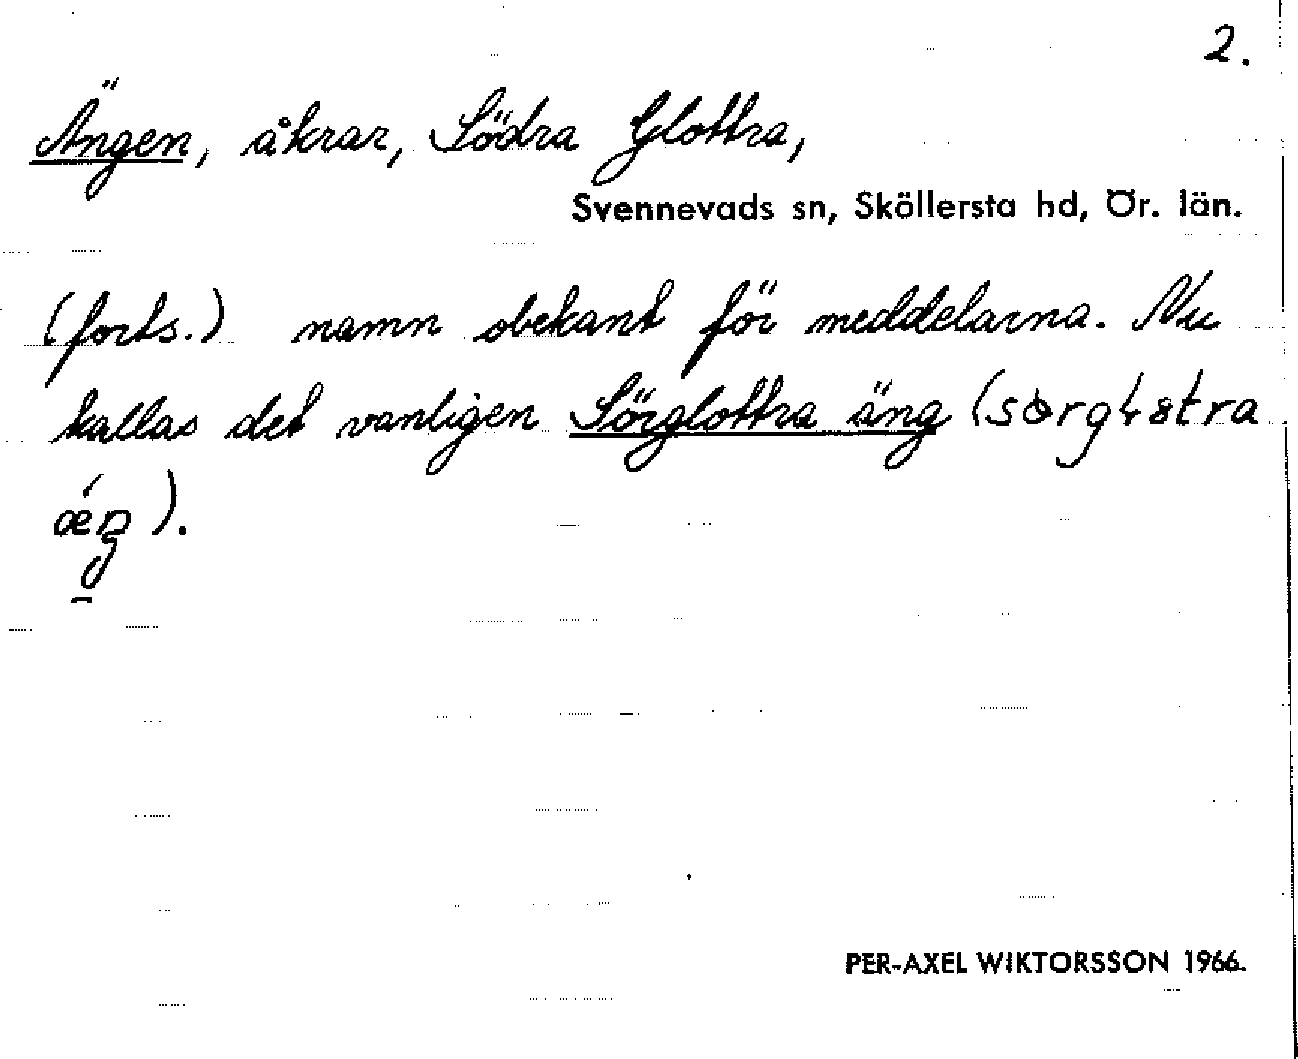 2.
Ängen, åkrar, Södra Glottra,
Svennevads sn, Sköllersta hd, Ör. län.
(forts.) namn obekant för meddelarna. Nu
kallas det vanligen Sörglottra äng
PER-AXEL WIKTORSSON 1966.